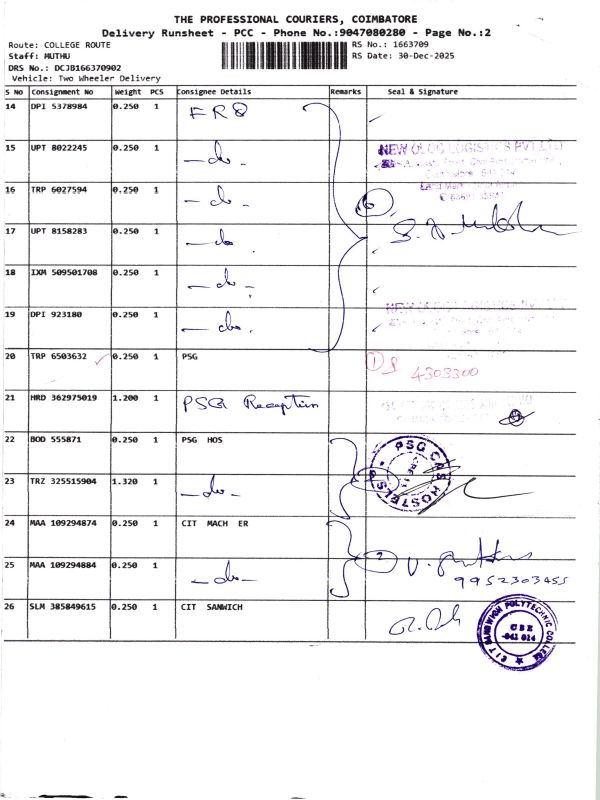 THE PROFESSIONAL COURIERS, COIMBATORE
Delivery Runsheet - PCC - Phone No.:9047080280 - Page No.:2
Route: COLLEGE ROUTE
RS No.: 1663709
Staff: MUTHU
RS Date: 30-Dec-2025
DRS No.: DCJB166370902
Vehicle: Two Wheeler Delivery
S No Consignment No Weight PCS Consignee Details Remarks Seal & Signature
14 DPI 5378984 0.250 1
15 UPT 8022245 0.250 1 - do -
NEW LOGISTICS PVT LTD
16 TRP 6027594 0.250 1 - do -
6
17 UPT 8158283 0.250 1 - do
18 IXM 509501708 0.250 1 - do -
19 DPI 923180 0.250 1 - do -
20 TRP 6503632 0.250 1 PSG
1
4303300
21 HRD 362975019 1.200 1 PSG Reception
22 BOD 555871 0.250 1 PSG HOS
PSG CAS HOSTELS
23 TRZ 325515904 1.320 1 - do -
24 MAA 109294874 0.250 1 CIT MACH ER
2
25 MAA 109294884 0.250 1 - do -
9952303455
26 SLM 385849615 0.250 1 CIT SANWICH
CIT SANDWICH POLYTECHNIC COLLEGE
CBE
-641 014